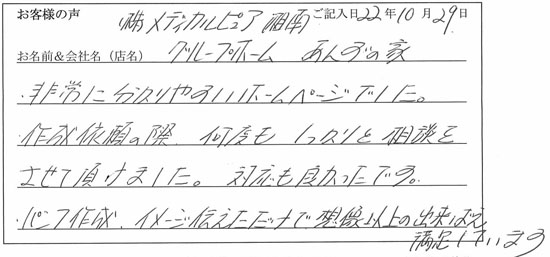 お客様の声 (株)メディカルピュア湘南 ご記入日22年10月29日
お名前&会社名(店名) グループホーム あんずの家
・非常に分かりやすいホームページでした。
作成依頼の際、何度も しっかりと 相談を
させて頂けました。 対応も良かったです。
・パンフ作成、イメージ伝えただけで想像以上の出来ばえ
満足しています